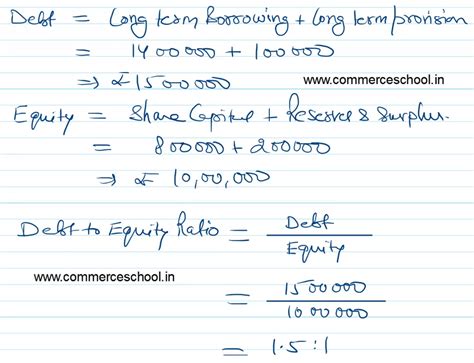 Debt = Long term Borrowing + Long term provision
= 1400000 + 100000
⇒ ₹ 1500000 www.commerceschool.in
Equity = Share Capital + Reserve & Surplus.
= 800000 + 200000
⇒ ₹ 10,00,000
Debt to Equity Ratio = Debt / Equity
www.commerceschool.in
= 1500000 / 1000000
= 1.5 : 1